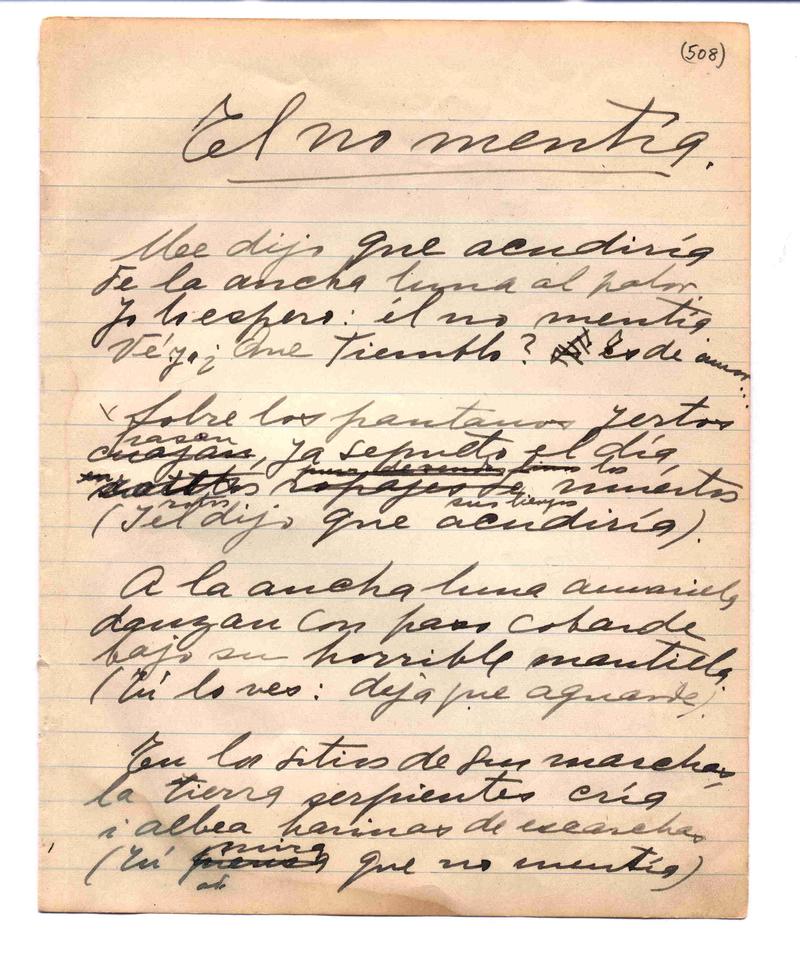 (508)
El no mentía.
Me dijo que acudiría
de la ancha luna al palor.
Yo lo espero: él no mentía
Vé yo ¿Que tiemblo? Es de amor...
Sobre los pantanos yertos
pasan
cuajan, ya sepulto el día,
en los
ropajes de muertos
rotos sus tiempos
(I él dijo que acudiría).
A la ancha luna amariela
danzan con paso cobarde
bajo su horrible mantiela
(Tú lo ves: deja que aguarde).
En los sitios de sus marchas
la tierra serpientes cría
i albea harinas de escarchas
mira
(Tú piensa que no mentía)